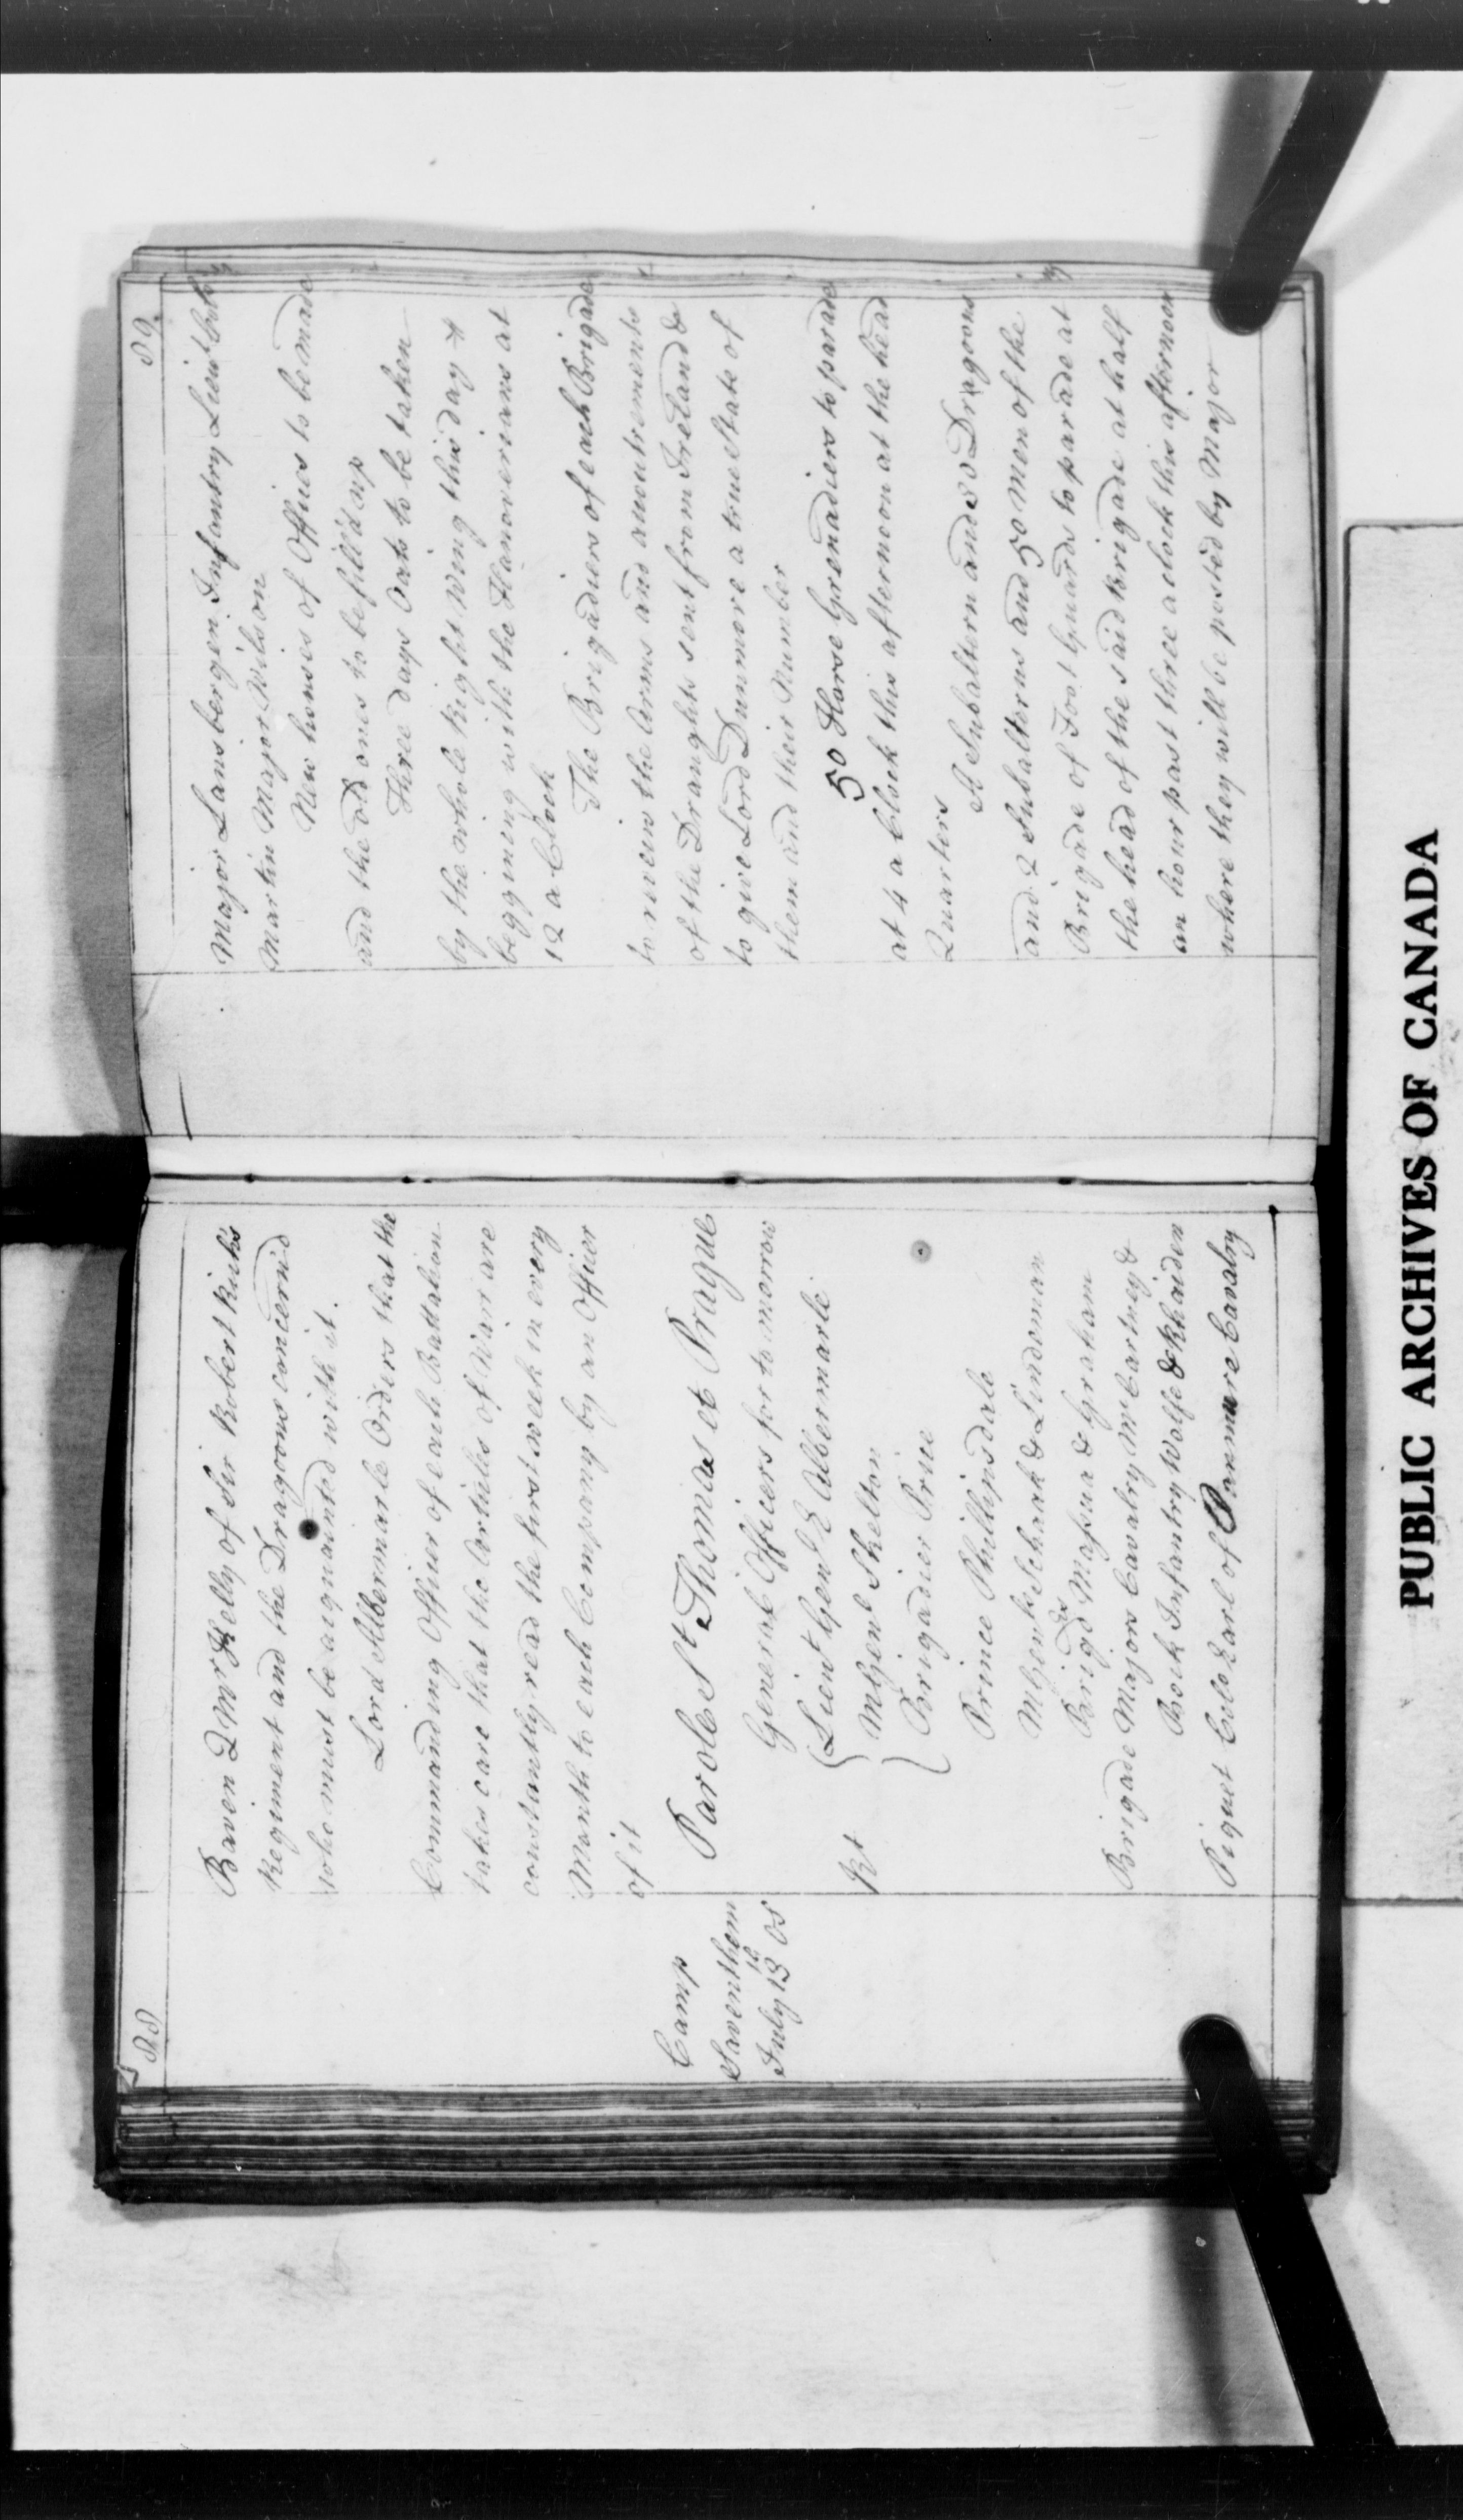 88
Baven QMr Kelly of Sir Robert Richs
Regiment and the Dragoons concern'd
who must be acquainted with it.
Lord Albermarle Orders that the
Commanding Officer of each Battalion
takes care that the Articles of Warr are
constantly read the first week in every
Month to each Company by an Officer
of it
Camp
Saventhem
July 13th OS
Parole St Thomas et Prague
General Officers for to morrow
Lieut Genl E Albermarle
Rt
MGenl Skelton
Brigadier Price
Prince Phillipsdale
MGenls Schaak & Lindsman
Brigdrs & Graham
Brigade Majors Cavalry McCartney &
Bock Infantry Wolfe &
Piquet Colo Earl of Panmure Cavalry
89.
Major Lansbergen Infantry Lieut Colo
Martin Major Wilson
New houses of Offices to be made
and the old ones to be fill'd up
Three days Oats to be taken
by the whole Right Wing this day
beggining with the Hanoverians at
12 a Clock
The Brigadiers of each Brigade
to review the Arms and accutrements
of the Draughts sent from Ireland &
to give Lord Dunmore a true State of
them and their Number
50 Horse Grenadiers to parade
at 4 a Clock this afternoon at the head
Quarters
A Subaltern and 30 Dragoons
and 2 Subalterns and 50 Men of the
Brigade of Foot Guards to parade at
the head of the said Brigade at half
an hour past three a clock this afternoon
where they will be posted by Major
PUBLIC ARCHIVES OF CANADA